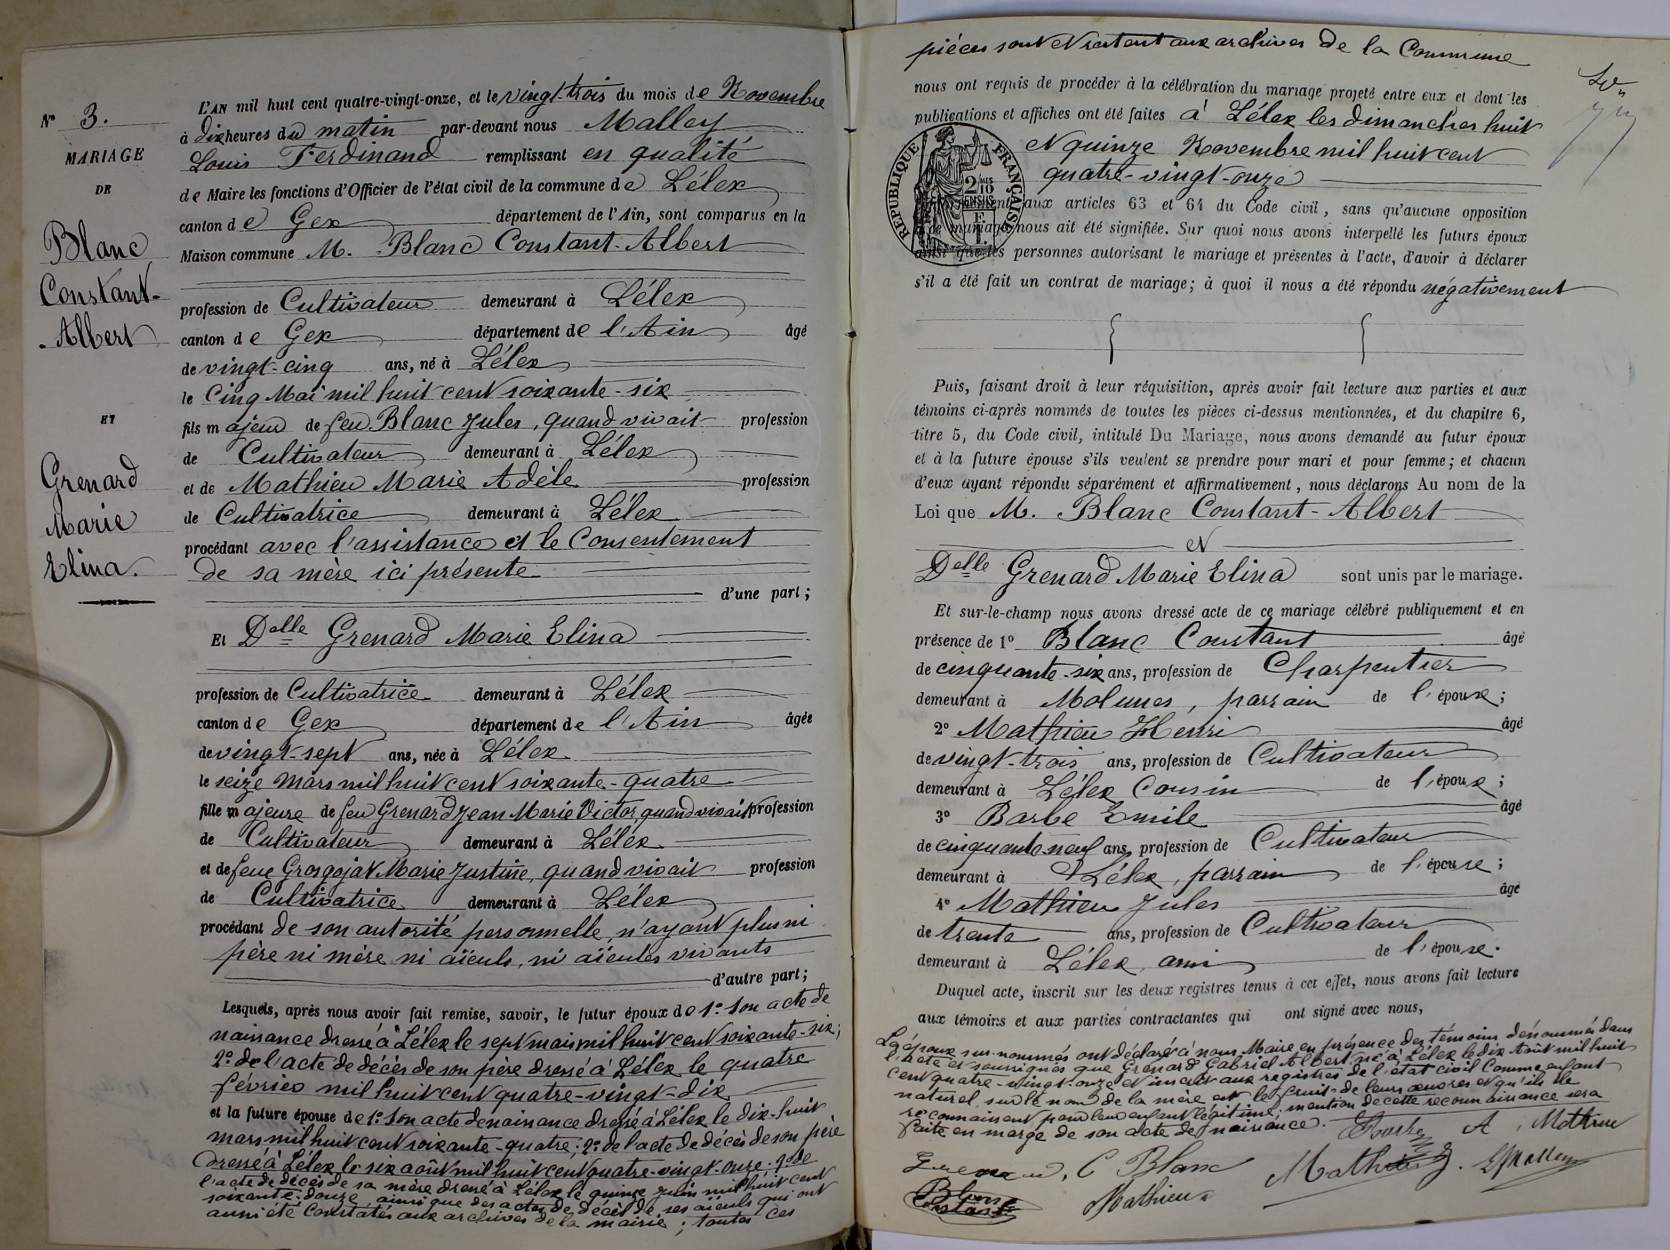 N° 3.
MARIAGE
DE
Blanc
Constant-
Albert
ET
Grenard
Marie
Elina.
L'AN mil huit cent quatre-vingt-onze, et le vingt-trois du mois de Novembre
à dix heures du matin par-devant nous Malley
Louis Ferdinand remplissant en qualité
de Maire les fonctions d'Officier de l'état civil de la commune de Lélex
canton de Gex département de l'Ain, sont comparus en la
Maison commune M. Blanc Constant-Albert
profession de Cultivateur demeurant à Lélex
canton de Gex département de l'Ain âgé
de vingt-cinq ans, né à Lélex
le cinq Mai mil huit cent soixante-six
fils majeur de feu Blanc Jules, quand vivait profession
de Cultivateur demeurant à Lélex
et de Mathieu Marie Adèle profession
de Cultivatrice demeurant à Lélex
procédant avec l'assistance et le Consentement
de sa mère ici présente
d'une part;
Et Delle Grenard Marie Elina
profession de Cultivatrice demeurant à Lélex
canton de Gex département de l'Ain âgée
de vingt-sept ans, née à Lélex
le seize mars mil huit cent soixante-quatre
fille majeure de feu Grenard Jean Marie Victor quand vivait profession
de Cultivateur demeurant à Lélex
et de feue Grosgojat Marie Justine, quand vivait profession
de Cultivatrice demeurant à Lélex
procédant de son autorité personnelle, n'ayant plus ni
père ni mère ni aïeuls, ni aïeules vivants
d'autre part;
Lesquels, après nous avoir fait remise, savoir, le futur époux de 1° Son acte de
naissance dressé à Lélex le sept mai mil huit cent soixante-six;
2° de l'acte de décès de son père dressé à Lélex le quatre
février mil huit cent quatre-vingt-dix
et la future épouse de 1° Son acte de naissance dressé à Lélex le dix-huit
mars mil huit cent soixante-quatre; 2° de l'acte de décès de son père
dressé à Lélex le six août mil huit cent quatre-vingt-onze; 3° de
l'acte de décès de sa mère dressé à Lélex le quinze juin mil huit cent
soixante-douze, ainsi que des actes de décès de ses aïeuls qui ont
aussi été constatés aux archives de la mairie; toutes ces
pièces sont et restent aux archives de la Commune
nous ont requis de procéder à la célébration du mariage projeté entre eux et dont les
publications et affiches ont été faites à Lélex les dimanches huit
et quinze Novembre mil huit cent
quatre-vingt-onze
RÉPUBLIQUE FRANÇAISE
aux articles 63 et 64 du Code civil, sans qu'aucune opposition
mariage nous ait été signifiée. Sur quoi nous avons interpellé les futurs époux
ainsi que les personnes autorisant le mariage et présentes à l'acte, d'avoir à déclarer
s'il a été fait un contrat de mariage; à quoi il nous a été répondu négativement
Puis, faisant droit à leur réquisition, après avoir fait lecture aux parties et aux
témoins ci-après nommés de toutes les pièces ci-dessus mentionnées, et du chapitre 6,
titre 5, du Code civil, intitulé Du Mariage, nous avons demandé au futur époux
et à la future épouse s'ils veulent se prendre pour mari et pour femme; et chacun
d'eux ayant répondu séparément et affirmativement, nous déclarons Au nom de la
Loi que M. Blanc Constant-Albert
et
Delle Grenard Marie Elina sont unis par le mariage.
Et sur-le-champ nous avons dressé acte de ce mariage célébré publiquement et en
présence de 1° Blanc Constant âgé
de cinquante-six ans, profession de Charpentier
demeurant à Molunes, parrain de l'époux;
2° Mathieu Henri âgé
de vingt-trois ans, profession de Cultivateur
demeurant à Lélex Cousin de l'époux;
3° Barbe Emile âgé
de cinquante neuf ans, profession de Cultivateur
demeurant à Lélex, parrain de l'épouse;
4° Mathieu Jules âgé
de trente ans, profession de Cultivateur
demeurant à Lélex ami de l'épouse.
Duquel acte, inscrit sur les deux registres tenus à cet effet, nous avons fait lecture
aux témoins et aux parties contractantes qui ont signé avec nous,
Les époux sus-nommés ont déclaré à nous Maire en présence des témoins dénommés dans
l'acte et soussignés que Grenard Gabriel Albert né à Lélex le dix août mil huit
cent quatre-vingt-onze et inscrit aux registres de l'état civil comme enfant
naturel sur le nom de la mère est le fruit de leurs œuvres et qu'ils le
reconnaissent pour leur enfant légitime; mention de cette reconnaissance sera
faite en marge de son acte de naissance.
Barbe A. Mathieu
C Blanc Mathieu J. Malley
Blanc
Constant
Mathieu